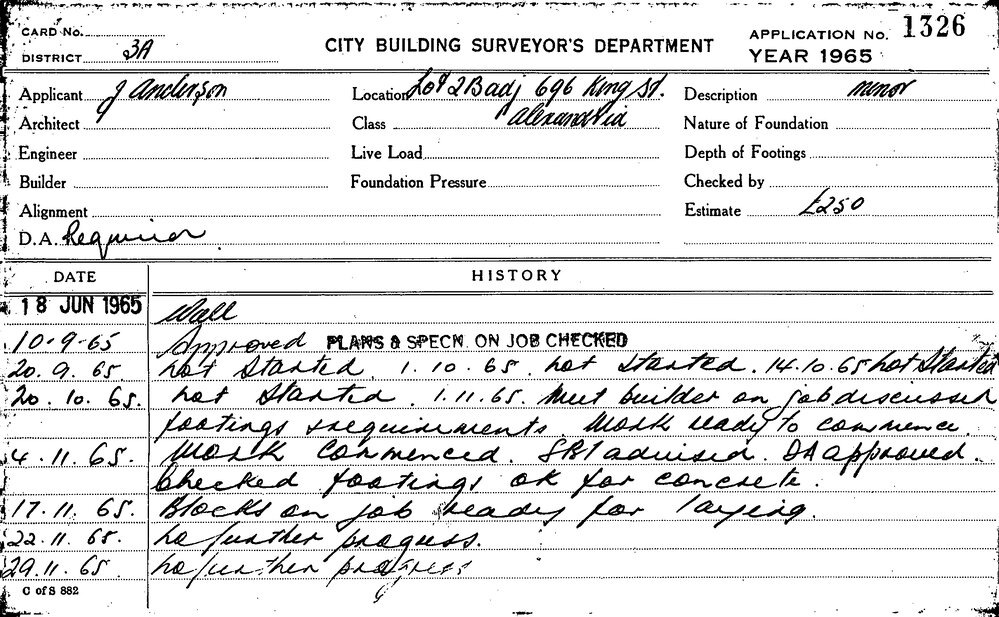 CARD No.
DISTRICT 3A
CITY BUILDING SURVEYOR'S DEPARTMENT
APPLICATION No. 1326
YEAR 1965
Applicant J Anderson
Location Lot 2B adj 696 King St.
Description minor
Architect
Class Alexandria
Nature of Foundation
Engineer
Live Load
Depth of Footings
Builder
Foundation Pressure
Checked by
Alignment
Estimate £250
D.A. Required
DATE HISTORY
18 JUN 1965 Wall
10-9-65 Approved PLANS & SPECN. ON JOB CHECKED
20.9.65 not started 1.10.65. not started. 14.10.65 not started
20.10.65. not started. 1.11.65. Met builder on job discussed
footings & requirements. Work ready to commence.
4.11.65. Work commenced. advised. DA approved.
Checked footings ok for concrete.
17.11.65. Blocks on job ready for laying.
22.11.65. no further progress.
29.11.65. no further progress
C of S 882